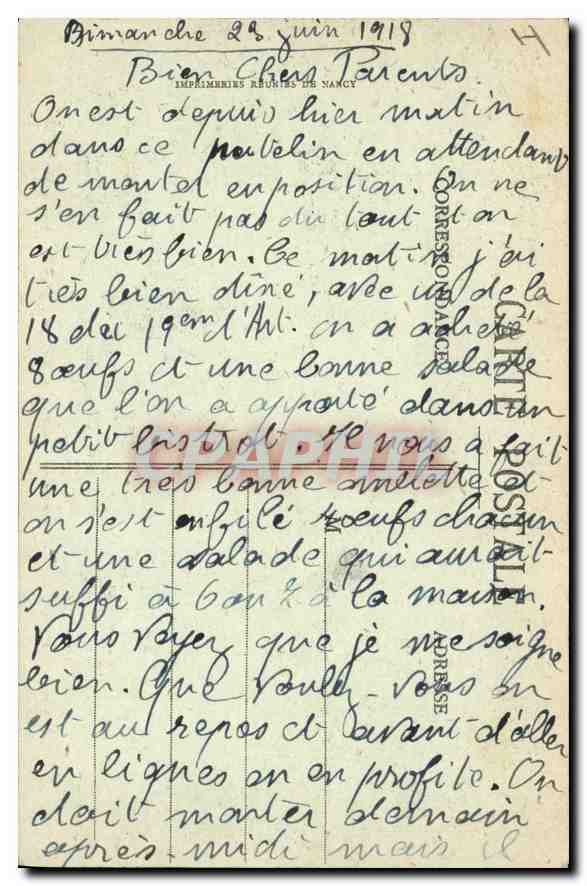 Dimanche 23 juin 1918
Bien Chers Parents.
IMPRIMERIES REUNIES DE NANCY
On est depuis hier matin
dans ce patelin en attendant
de monter en position. On ne
s'en fait pas du tout et on
est très bien. Ce matin j'ai
très bien diné, avec un de la
18 du 19em d'Art. on a acheté
8 œufs et une bonne salade
que l'on a apporté dans un
petit bistrot. Il nous a fait
une très bonne omelette et
on s'est enfilé 4 œufs chacun
et une salade qui aurait
suffi à 6 ou 7 à la maison.
Vous voyez que je me soigne
bien. Que voulez-vous on
est au repos et avant d'aller
en lignes on en profite. On
doit monter demain
après-midi mais il
CORRESPONDANCE
CARTE POSTALE
ADRESSE
M
CPAPHIL